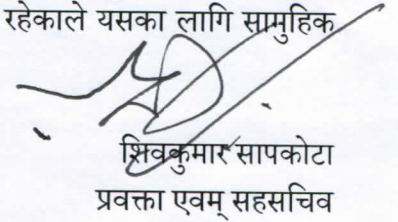 रहेकाले यसका लागि सामुहिक
शिवकुमार सापकोटा
प्रवक्ता एवम् सहसचिव